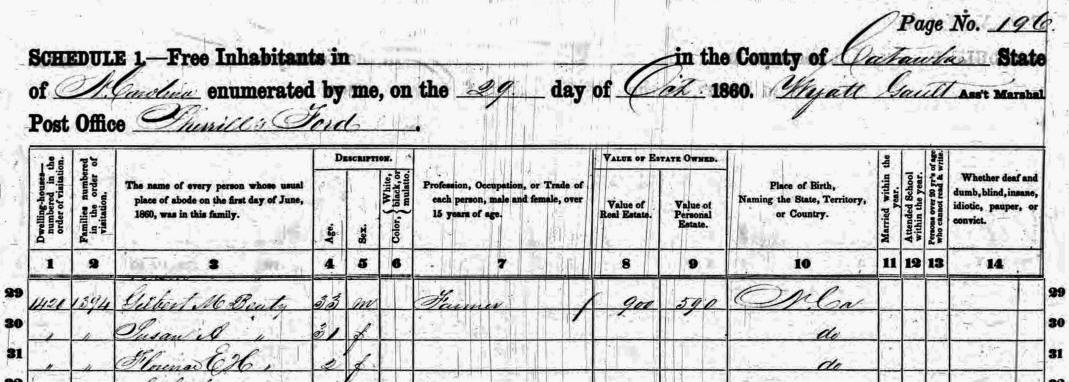 Page No. 196
SCHEDULE 1.—Free Inhabitants in in the County of Catawba State
of N. Carolina enumerated by me, on the 29 day of Oct. 1860. Wyatt Gault Ass't Marshal
Post Office Sherrill's Ford.
Dwelling-houses—numbered in the order of visitation.
Families numbered in the order of visitation.
The name of every person whose usual place of abode on the first day of June, 1860, was in this family.
DESCRIPTION.
Age.
Sex.
Color, { White, black, or mulatto.
Profession, Occupation, or Trade of each person, male and female, over 15 years of age.
VALUE OF ESTATE OWNED.
Value of Real Estate.
Value of Personal Estate.
Place of Birth, Naming the State, Territory, or Country.
Married within the year.
Attended School within the year.
Persons over 20 y'rs of age who cannot read & write.
Whether deaf and dumb, blind, insane, idiotic, pauper, or convict.
1 2 3 4 5 6 7 8 9 10 11 12 13 14
29 1420 1394 Gilbert M Beaty 33 m Farmer 900 590 N. Ca 29
30 " " Susan A " 31 f do 30
31 " " Florence E H " 2 f do 31